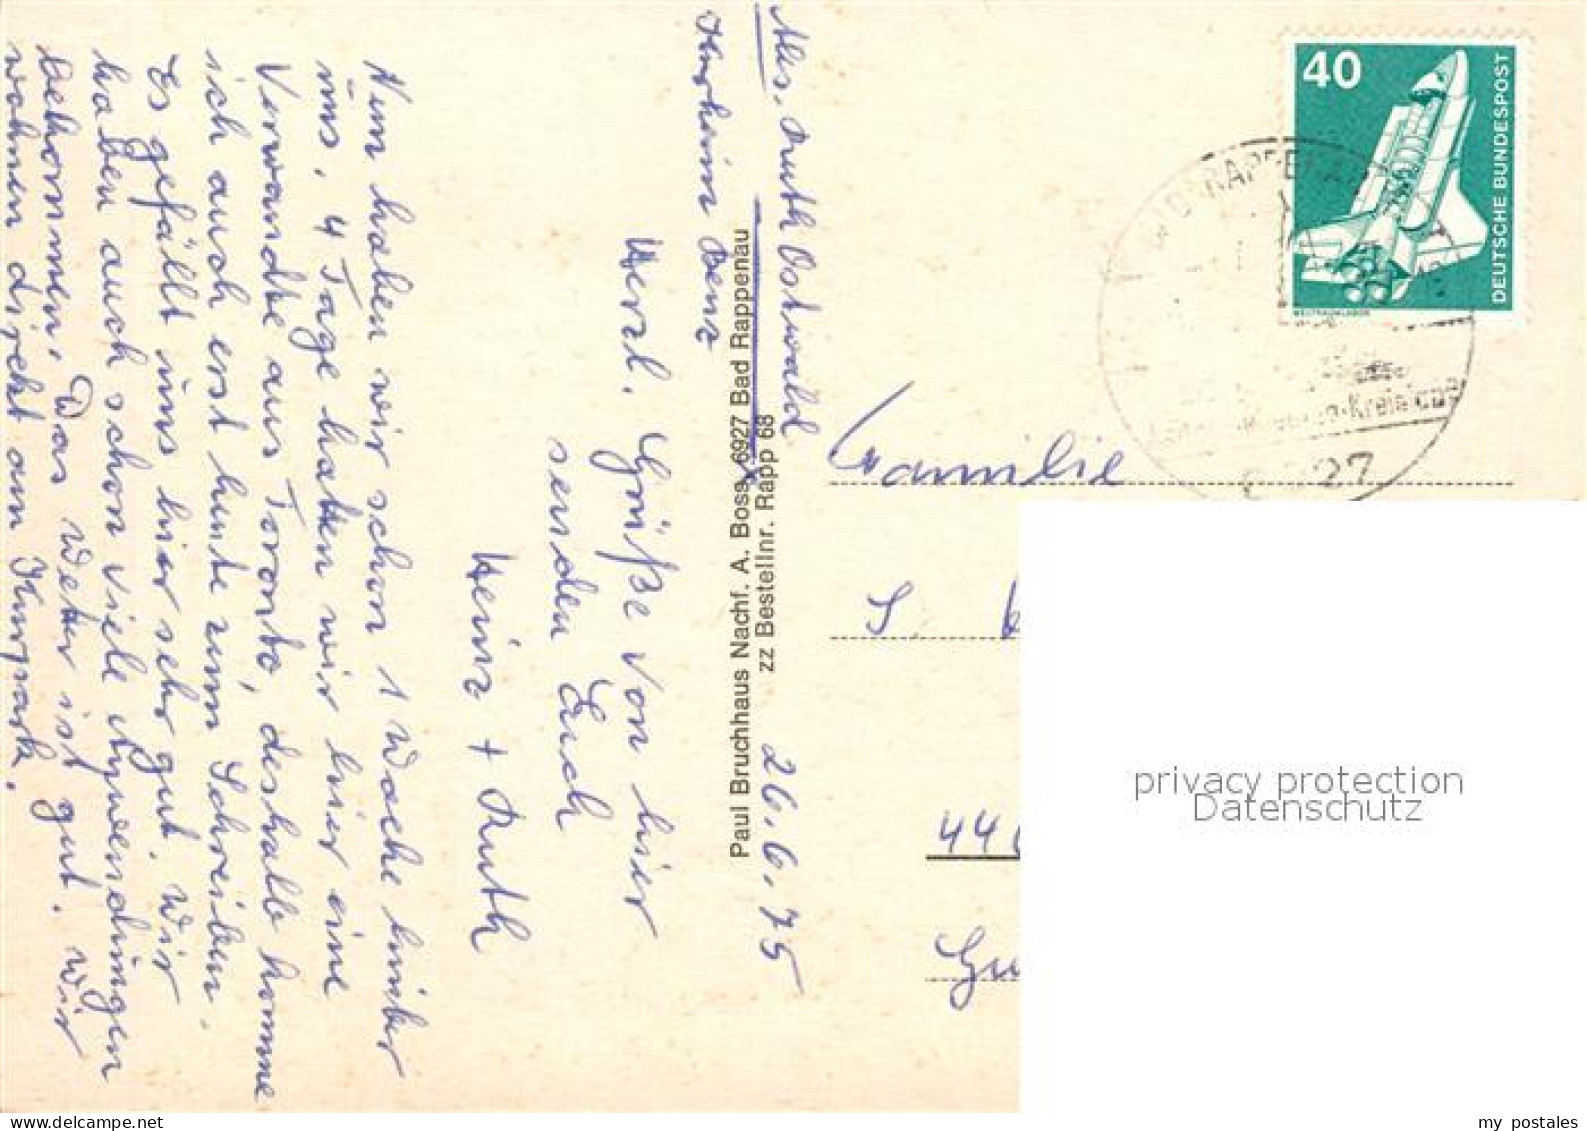 Abs. Ruth Ostwald
Kurheim Benz
26.6.75
Nun haben wir schon 1 Woche hinter
uns. 4 Tage hatten wir hier eine
Verwandte aus Toronto, deshalb komme
ich auch erst heute zum Schreiben.
Es gefällt uns hier sehr gut. Wir
haben auch schon viele Anwendungen
bekommen. Das Wetter ist gut. Wir
wohnen direkt am Kurpark.
Herzl. Grüße von hier
senden Euch
Heinz + Ruth
Paul Bruchhaus Nachf. A. Boss, 6927 Bad Rappenau
zz Bestellnr. Rapp 68
40
DEUTSCHE BUNDESPOST
WELTRAUMLABOR
Familie
S
440
Gu
privacy protection
Datenschutz
my postales